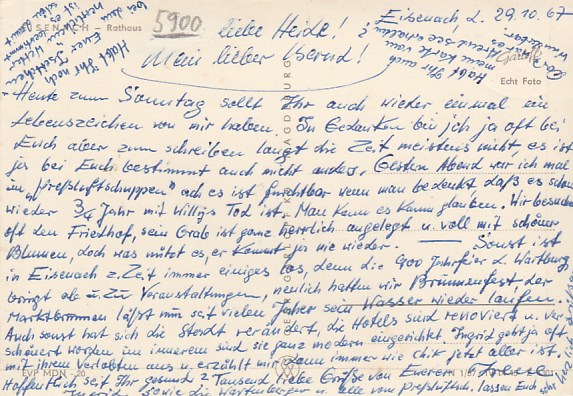 EISENACH – Rathaus
5900
Eisenach d. 29.10.67
Liebe Heide!
Mein lieber Bernd!
Habt Ihr noch
Habt Ihr auch
meine Karte vom
erhalten
Echt Foto
Heute zum Sonntag sollt Ihr auch wieder einmal ein
Lebenszeichen von mir haben. In Gedanken bin ich ja oft bei
Euch aber zum schreiben langt die Zeit meistens nicht es ist
ja bei Euch bestimmt auch nicht anders. Gestern Abend war ich mal
im "Preßluftschuppen" ach es ist furchtbar wenn man bedenkt daß es schon
wieder 3/4 Jahr mit Willys Tod ist. Man kann es kaum glauben. Wir besuchen
oft den Friedhof, sein Grab ist ganz herrlich angelegt u. voll mit schöner
Blumen, doch was nützt es, er kommt ja nie wieder. — Sonst ist
in Eisenach z. Zeit immer einiges los, denn die 900 Jahrfeier d. Wartburg
bringt ab u. zu Veranstaltungen, neulich hatten wir Brunnenfest, der
Marktbrunnen läßt nun seit vielen Jahren sein Wasser wieder laufen.
Auch sonst hat sich die Stadt verändert, die Hotels sind renoviert u. ver
schönert worden im inneren sind sie ganz modern eingerichtet. Ingrid geht ja oft
mit ihrem Verlobten aus u. erzählt mir dann immer wie chik jetzt alles ist.
Hoffentlich seit Ihr gesund u. Tausend liebe Grüße von Eurer
EVP MDN –20
Ingrid sowie die Wartenberger u. alle vom Preßluftsch. lassen Euch
sehr herzlich grüßen